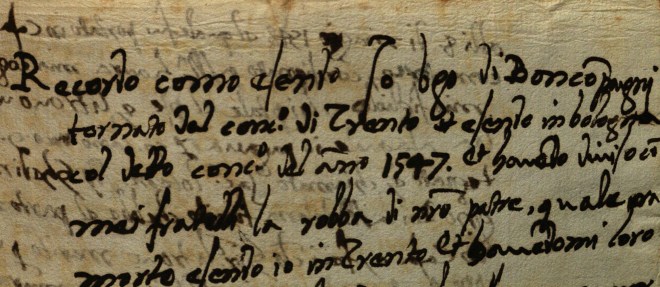 Recordo como essendo Io Ugo di Boncōpagni
tornato dal conc.o di Trento et essendo in bologna
col detto conc.o del āno 1547. et havēdo diviso cō
mei fratelli la robba di nr̄o patre, quale era
morto essendo io in Trento et havēdomi loro